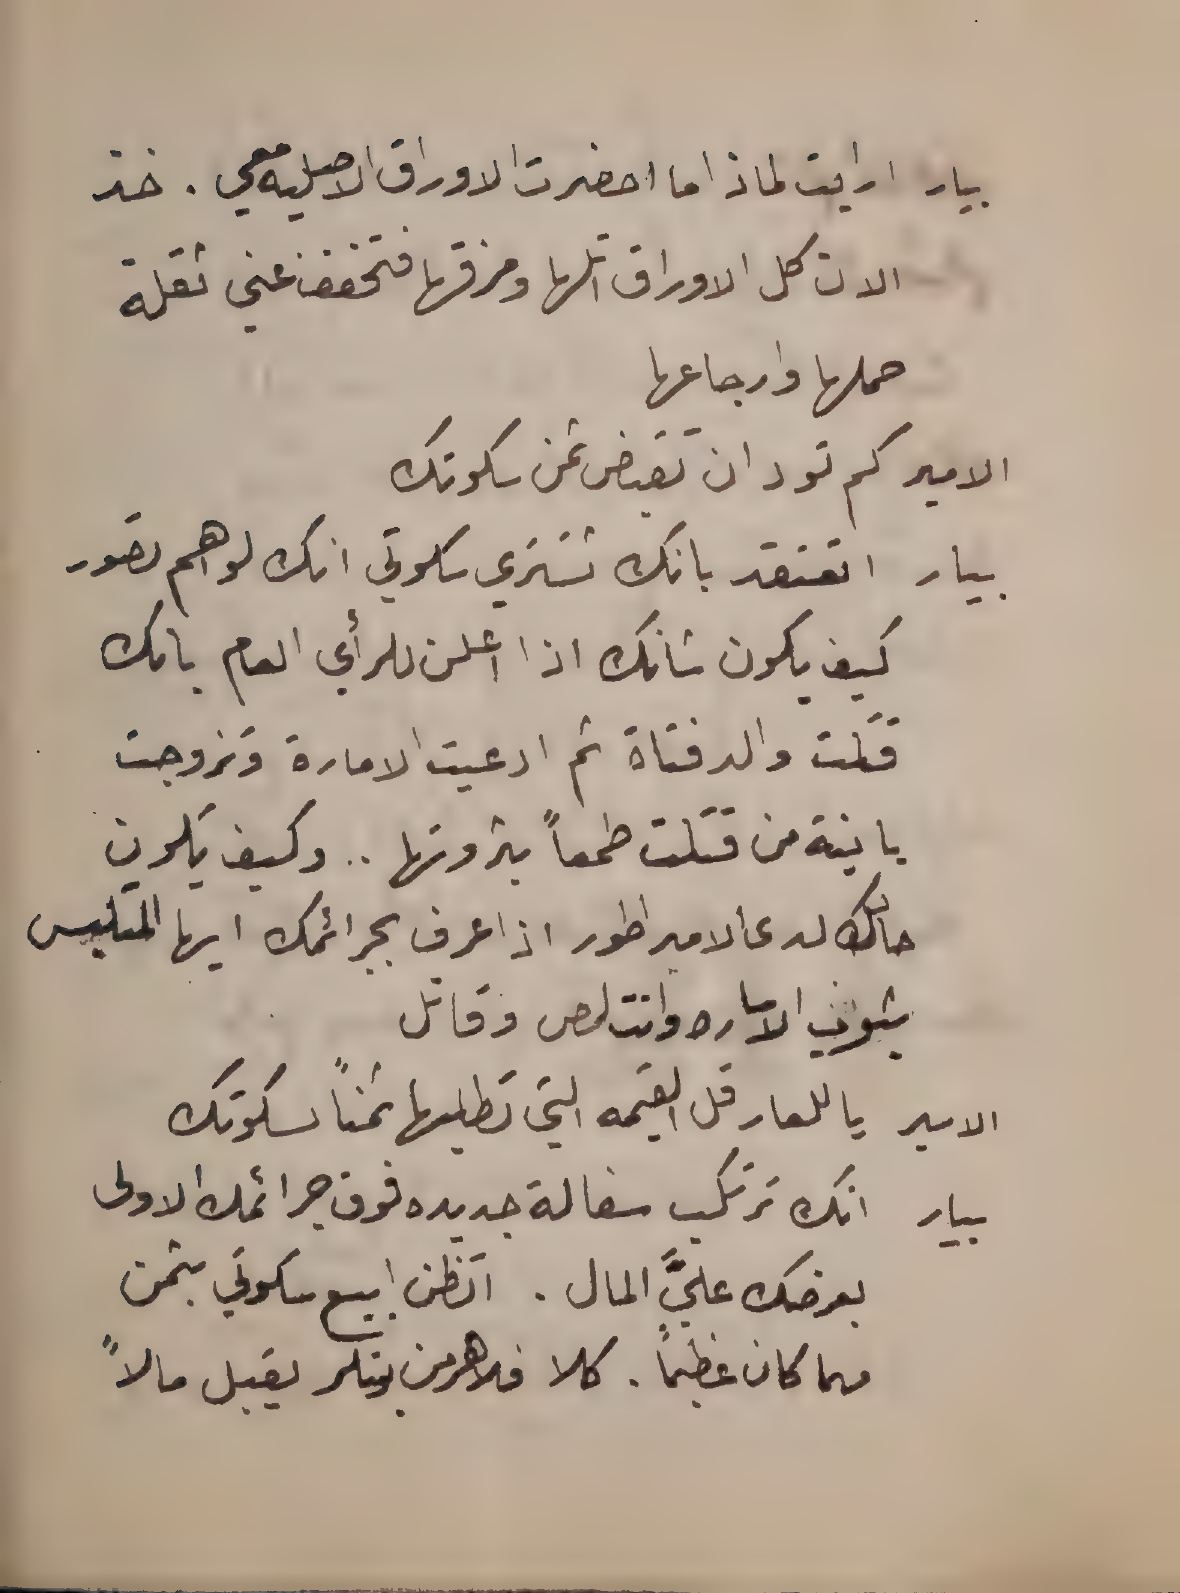 بيار ارايت لماذا ما احضرت الاوراق الاصليه معي . خذ
الان كل الاوراق اتلها ومزقها فتخفف عني ثقلة
حملها وارجاعها
الامير كم تود ان تقبض ثمن سكوتك
بيار اتعتقد بانك تشتري سكوتي انك لواهم تصور
كيف يكون شانك اذا اعلن للرأي العام بانك
قتلت والد فتاة ثم ادعيت الامارة وتزوجت
بابنة من قتلت طمعاً بثروتها .. وكيف يكون
حالك لدى الامبراطور اذا عرف بجرائمك ايها المتلبس
بثوب الاماره وانت لص وقاتل
الامير ياللعار قل القيمه التي تطلبها ثمناً لسكوتك
بيار انك ترتكب سفالة جديده فوق جرائمك الاولى
بعرضك عليَّ المال . اتظن ابيع سكوتي بثمن
مهما كان عظيماً . كلا فلا هرمن بيتلر يقبل مالاً